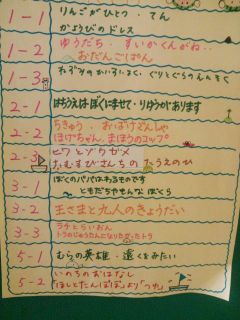 1-1
りんごがひとつ・てん
かようびのドレス
1-2
ゆうだち・すいかくんがね‥
おだんごぱん
1-3
ねずみのかいすいよく・ぐりとぐらのえんそく
2-1
はちうえはぼくにまかせて・りゆうがあります
2-2
ちきゅう・おばけでんしゃ
ほげちゃん・まほうのコップ
2-3
ヒワとゾウガメ
おむすびさんちのたうえのひ
3-1
ぼくのパパはわるものです
ともだちやもんな ぼくら
3-2
王さまと九人のきょうだい
3-3
ラチとらいおん
トラのじゅうたんになりたがったトラ
5-1
むらの英雄・遠くをみたい
5-2
いのちのおはなし
「ほしとたんぽぽ」より「つもった